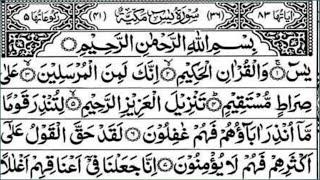 اٰیاتُهَا ٨٣ (٣٦) سُوْرَةُ یٰسٓ مَكِّیَّةٌ (٤١) رُكُوْعَاتُهَا ٥
بِسْمِ اللهِ الرَّحْمٰنِ الرَّحِیْمِ
یٰسٓ ۝ وَالْقُرْاٰنِ الْحَكِیْمِ ۝ اِنَّكَ لَمِنَ الْمُرْسَلِیْنَ ۝ عَلٰی
صِرَاطٍ مُّسْتَقِیْمٍ ۝ تَنْزِیْلَ الْعَزِیْزِ الرَّحِیْمِ ۝ لِتُنْذِرَ قَوْمًا
مَّاۤ اُنْذِرَ اٰبَآؤُهُمْ فَهُمْ غٰفِلُوْنَ ۝ لَقَدْ حَقَّ الْقَوْلُ عَلٰۤی
اَكْثَرِهِمْ فَهُمْ لَا یُؤْمِنُوْنَ ۝ اِنَّا جَعَلْنَا فِیْۤ اَعْنَاقِهِمْ اَغْلٰلًا